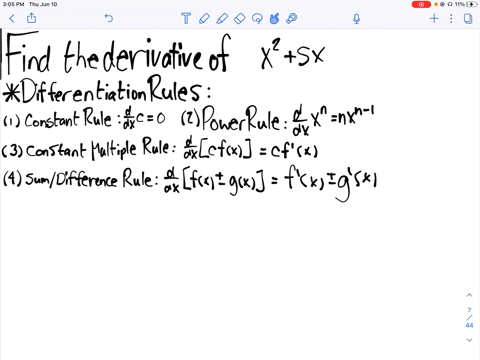 3:05 PM Thu Jun 10
11%
Find the derivative of x² + 5x
*Differentiation Rules:
(1) Constant Rule: d/dx c = 0 (2) Power Rule: d/dx xⁿ = nxⁿ⁻¹
(3) Constant Multiple Rule: d/dx [cf(x)] = cf'(x)
(4) Sum/Difference Rule: d/dx [f(x) ± g(x)] = f'(x) ± g'(x)
7
/
44